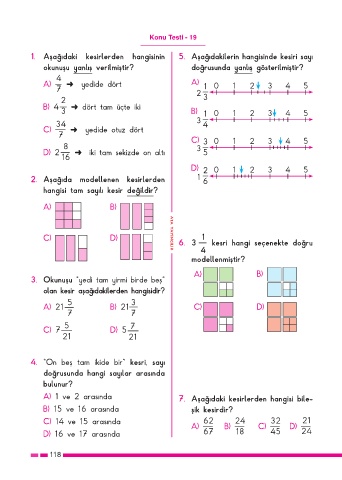 Konu Testi - 19
1. Aşağıdaki kesirlerden hangisinin
okunuşu yanlış verilmiştir?
A) 4/7 ➜ yedide dört
B) 4 2/3 ➜ dört tam üçte iki
C) 34/7 ➜ yedide otuz dört
D) 2 8/16 ➜ iki tam sekizde on altı
2. Aşağıda modellenen kesirlerden
hangisi tam sayılı kesir değildir?
A) B)
C) D)
3. Okunuşu "yedi tam yirmi birde beş"
olan kesir aşağıdakilerden hangisidir?
A) 21 5/7 B) 21 3/7
C) 7 5/21 D) 5 7/21
4. "On beş tam ikide bir" kesri, sayı
doğrusunda hangi sayılar arasında
bulunur?
A) 1 ve 2 arasında
B) 15 ve 16 arasında
C) 14 ve 15 arasında
D) 16 ve 17 arasında
5. Aşağıdakilerin hangisinde kesiri sayı
doğrusunda yanlış gösterilmiştir?
A) 2 1/3 0 1 2 3 4 5
B) 3 1/4 0 1 2 3 4 5
C) 3 3/5 0 1 2 3 4 5
D) 1 2/6 0 1 2 3 4 5
6. 3 1/4 kesri hangi seçenekte doğru
modellenmiştir?
A) B)
C) D)
7. Aşağıdaki kesirlerden hangisi bile-
şik kesirdir?
A) 62/67 B) 24/18 C) 32/45 D) 21/24
118